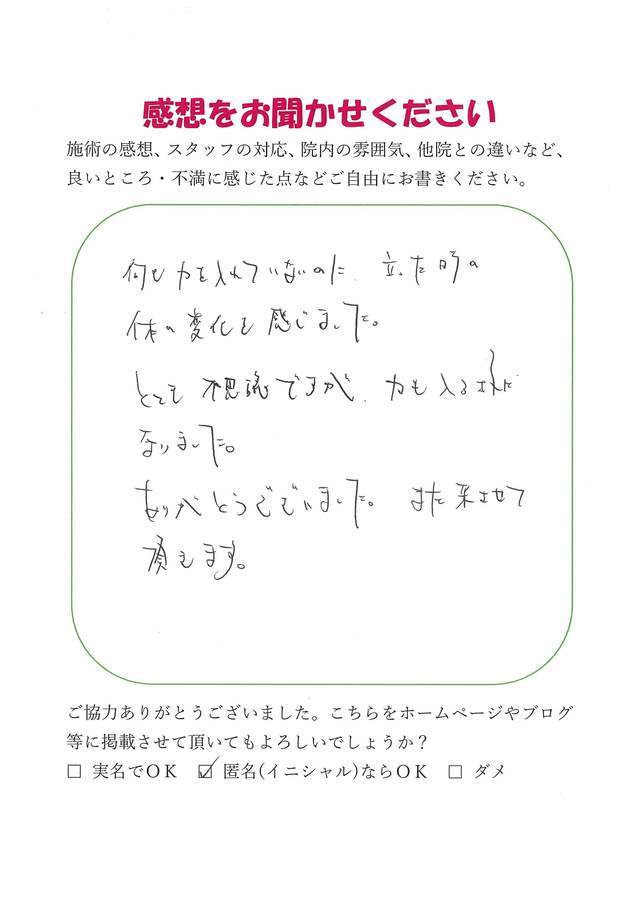 感想をお聞かせください
施術の感想、スタッフの対応、院内の雰囲気、他院との違いなど、
良いところ・不満に感じた点などご自由にお書きください。
何も力を入れていないのに、立った時の
体の変化を感じました。
とても不思議ですが、力も入る様に
なりました。
ありがとうございました。また来させて
頂きます。
ご協力ありがとうございました。こちらをホームページやブログ
等に掲載させて頂いてもよろしいでしょうか？
□ 実名でOK ☑ 匿名(イニシャル)ならOK □ ダメ